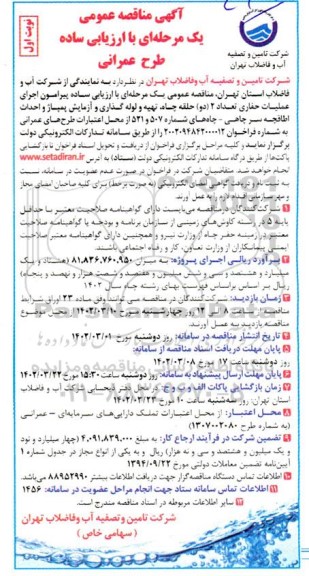 آگهی مناقصه عمومی
یک مرحله‌ای با ارزیابی ساده
طرح عمرانی
نوبت اول
شرکت تامین و تصفیه
آب و فاضلاب تهران
شرکت تامین و تصفیه آب وفاضلاب تهران در نظر دارد به نمایندگی از شرکت آب و
فاضلاب استان تهران، مناقصه عمومی یک مرحله‌ای با ارزیابی ساده پیرامون اجرای
عملیات حفاری تعداد ۲ (دو) حلقه چاه، تهیه و لوله گذاری و آزمایش پمپاژ و احداث
اطاقچه سر چاهی - چاه‌های شماره ۵۰۷ و ۵۳۱ از محل اعتبارات طرح‌های عمرانی
به شماره فراخوان ۲۰۰۳۰۹۴۸۴۲۰۰۰۰۱۲ را از طریق سامانه تدارکات الکترونیکی دولت
برگزار نمایید و کلیه مراحل برگزاری فراخوان از دریافت و تحویل اسناد فراخوان تا بازگشایی
پاکت‌ها از طریق درگاه سامانه تدارکات الکترونیکی دولت (ستاد) به آدرس www.setadiran.ir
انجام خواهد شد. متقاضیان شرکت در فراخوان در صورت عدم عضویت در سامانه، نسبت
به ثبت نام و دریافت گواهی امضای الکترونیکی (به صورت برخط) برای کلیه صاحبان امضای مجاز
و مهر سازمانی اقدام لازم به عمل آورند.
۱ شرکت کنندگان در مناقصه می‌بایست دارای گواهینامه صلاحیت معتبر با حداقل
پایه ۵ در رشته کاوش‌های زمینی از سازمان برنامه و بودجه یا گواهینامه صلاحیت
معتبر در زمینه حفر چاه از وزارت نیرو و همچنین دارای گواهینامه معتبر صلاحیت
ایمنی پیمانکاران از وزارت تعاون، کار و رفاه اجتماعی باشند.
۲ برآورد ریالی اجرای پروژه: به میزان ۸۱.۸۳۶.۷۶۰.۹۵۰ (هشتاد و یک
میلیارد و هشتصد و سی و شش میلیون و هفتصد و شصت هزار و نهصد و پنجاه)
ریال بر اساس فهرست بهای رشته چاه سال ۱۴۰۲
۳ زمان بازدید: شرکت کنندگان در مناقصه می توانند وفق ماده ۲۳ اوراق شرایط
مناقصه، از ساعت ۸ الی ۱۲ روز چهارشنبه مورخ ۱۴۰۲/۰۳/۱۰ از محل موضوع
مناقصه بازدید به عمل آورند.
۴ تاریخ انتشار مناقصه در سامانه: روز دوشنبه مورخ ۱۴۰۲/۰۳/۰۱
۵ پایان مهلت دریافت اسناد مناقصه از سامانه:
روز دوشنبه ساعت ۱۷ مورخ ۱۴۰۲/۰۳/۰۸
۶ پایان مهلت ارسال پیشنهاد به سامانه: روز دوشنبه ساعت ۱۵:۳۰ مورخ ۱۴۰۲/۰۳/۲۲
۷ زمان بازگشایی پاکات الف و ب و ج: در محل دفتر شرکت آب و فاضلاب
استان تهران، روز سه‌شنبه ساعت ۱۰ مورخ ۱۴۰۲/۰۳/۲۳
۸ محل اعتبار: از محل اعتبارات تملک دارایی‌های سرمایه‌ای - عمرانی
(به شماره طرح ۱۳۰۷۰۰۲۰۸۰)
۹ تضمین شرکت در فرآیند ارجاع کار: به مبلغ ۴.۰۹۱.۸۳۹.۰۰۰ (چهار میلیارد و نود
و یک میلیون و هشتصد و سی و نه هزار) ریال و به یکی از انواع مجاز در جدول شماره ۱
آیین‌نامه تضمین معاملات دولتی مورخ ۱۳۹۴/۰۹/۲۲
۱۰ اطلاعات تماس دستگاه مناقصه‌گزار جهت دریافت اطلاعات بیشتر ۸۸۹۵۲۹۹۰ می‌باشد.
۱۱ اطلاعات تماس سامانه ستاد جهت انجام مراحل عضویت در سامانه: ۱۴۵۶
۱۲ سایر اطلاعات مربوطه در اسناد مناقصه مندرج است.
شرکت تامین و تصفیه آب وفاضلاب تهران
( سهامی خاص )